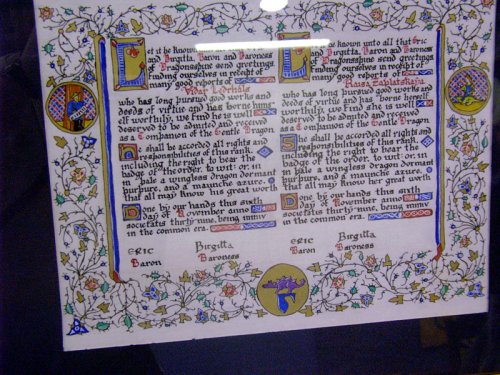 Let it be known unto all that Eric
and Birgitta, Baron and Baroness
of Dragonsshire send greetings
finding ourselves in receipt of
many good reports of
Vidar
who has long pursued good works and
deeds of virtue and has borne hims-
elf worthily, we find he is well
deserved to be admitted and received
as a Companion of the Gentle Dragon
He shall be accorded all rights and
responsibilities of this rank,
including the right to bear the
badge of the order, to wit: or, in
pale a wingless dragon dormant
purpure, and a maunche azure.
that all may know his great worth
Done by our hands this sixth
day of November anno
societatis thirty nine, being mmiv
in the common era.
Eric Birgitta
Baron Baroness
Let it be known unto all that Eric
and Birgitta, Baron and Baroness
of Dragonsshire send greetings
finding ourselves in receipt of
many good reports of
Raisa
who has long pursued good works and
deeds of virtue and has borne herself
worthily, we find she is well
deserved to be admitted and received
as a Companion of the Gentle Dragon
She shall be accorded all rights and
responsibilities of this rank,
including the right to bear the
badge of the order, to wit: or, in
in pale a wingless dragon dormant
purpure, and a maunche azure.
that all may know her great worth
Done by our hands this sixth
day of November anno
societatis thirty nine, being mmiv
in the common era.
Eric Birgitta
Baron Baroness